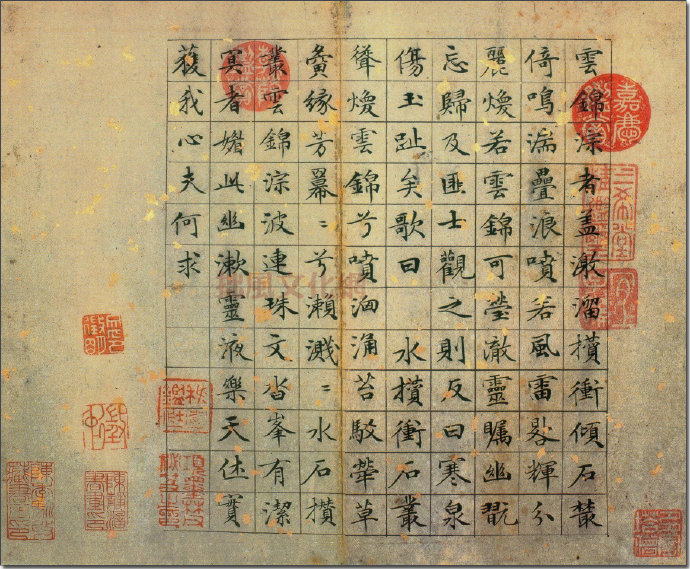 雲錦淙者盖激溜攢衝傾石藂
倚鳴湍疊浪噴若風雷畧輝分
麗煥若雲錦可瑩澈靈矚幽翫
忘歸及匪士觀之則反曰寒泉
傷玉趾矣歌曰 水攢衝石叢
聳煥雲錦兮噴洶涌苔駮犖草
夤緣芳羃〻兮瀨濺〻水石攢
叢雲錦淙波連珠文沓峯有潔
冥者媚此幽漱靈液樂天休實
獲我心夫何求
三希堂精鑑璽
宜子孫